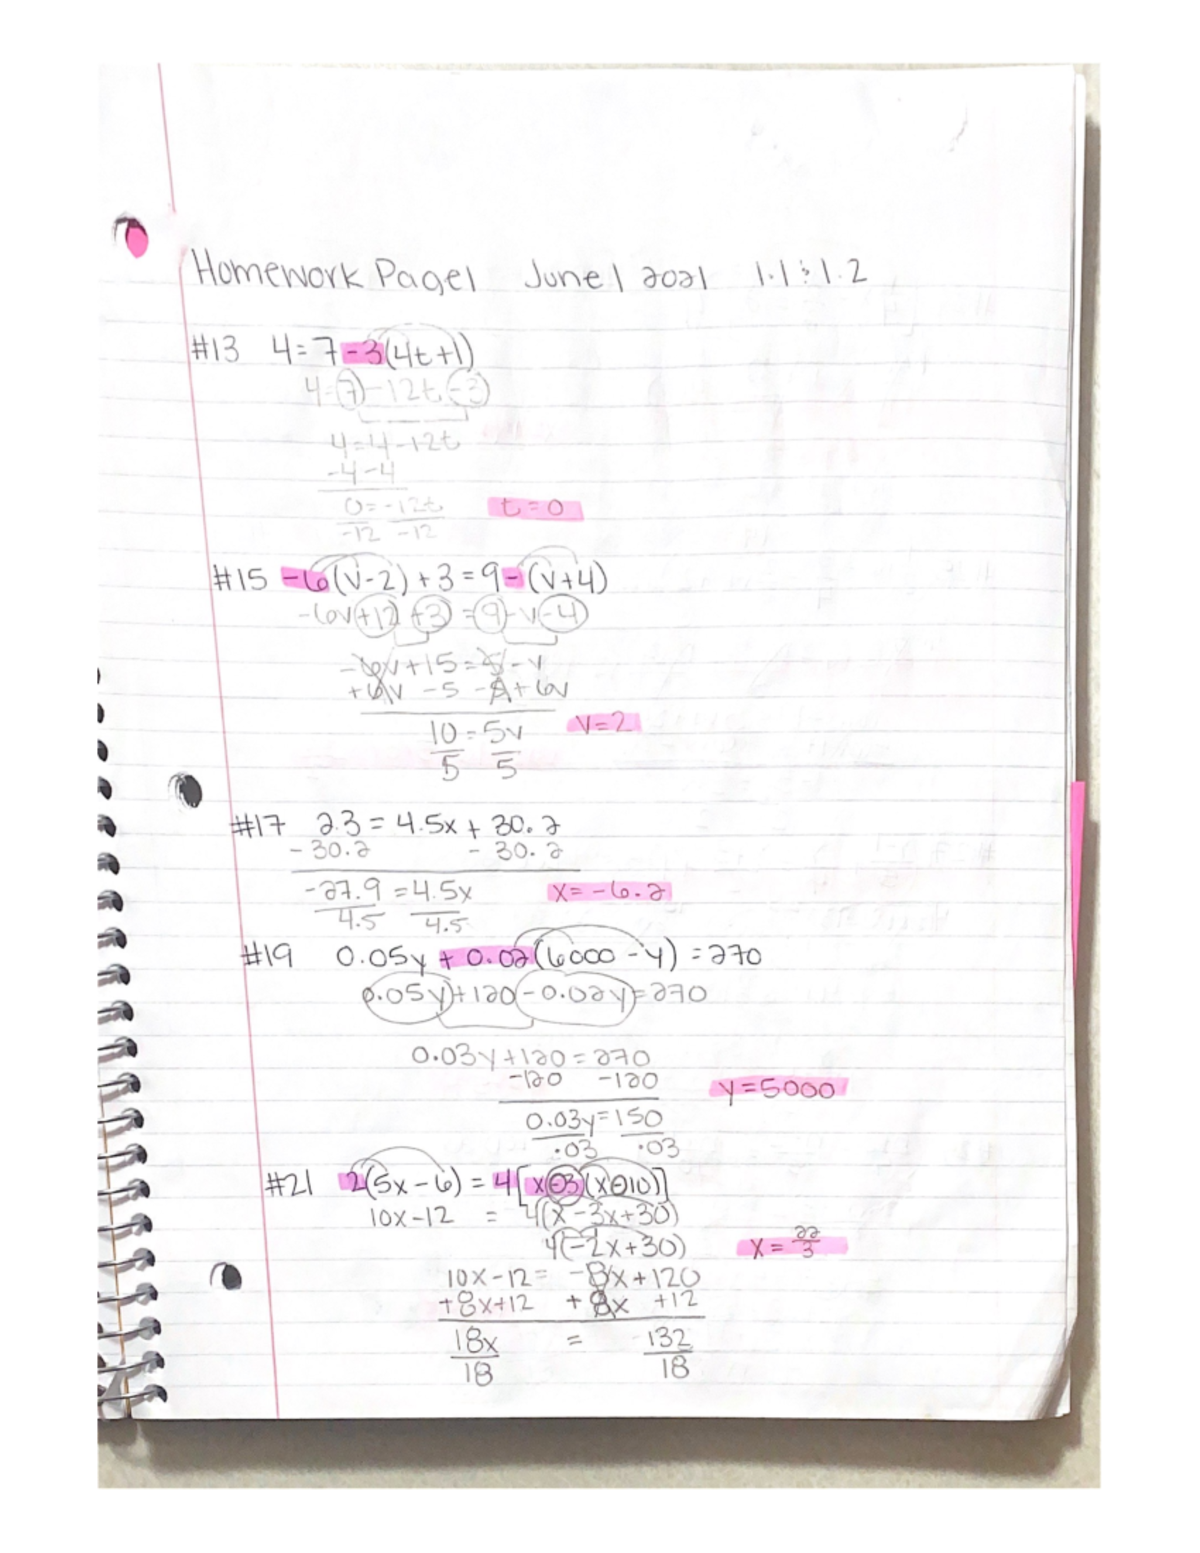 Homework Page 1 June 1 2021 1.1 & 1.2
#13 4 = 7 - 3(4t+1)
4 = 7 - 12t - 3
4 = 4 - 12t
-4 -4
0 = -12t t = 0
-12 -12
#15 -6(v-2) + 3 = 9 - (v+4)
-6v + 12 + 3 = 9 - v - 4
-6v + 15 = 5 - v
+6v - 5 - 5 + 6v
10 = 5v v = 2
5 5
#17 2.3 = 4.5x + 30.2
- 30.2 - 30.2
-27.9 = 4.5x x = -6.2
4.5 4.5
#19 0.05y + 0.02(6000 - y) = 270
0.05y + 120 - 0.02y = 270
0.03y + 120 = 270
-120 -120 y = 5000
0.03y = 150
.03 .03
#21 2(5x - 6) = 4[x - 3(x - 10)]
10x - 12 = 4(x - 3x + 30)
4(-2x + 30) x = 22/3
10x - 12 = -8x + 120
+8x + 12 + 8x + 12
18x = 132
18 18